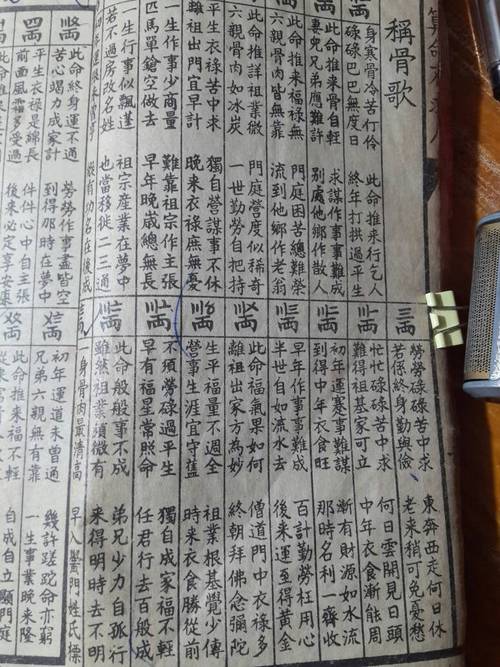 稱骨歌
身寒骨冷苦行伶
此命推來行乞人
碌碌巴巴無度日
終年打拱過平生
此命推來骨自輕
求謀作事事難成
妻兒兄弟應難許
別處他鄉作散人
此命推來福祿無
門庭困苦總難榮
六親骨肉皆無靠
流到他鄉作老翁
此命推詳祖業微
門庭營度似稀奇
六親骨肉如水炭
一世勤勞自把持
平生衣祿苦中求
獨自營謀事不休
離祖出門宜早計
晚來衣祿庶無憂
一生作事少商量
難靠祖宗作主張
匹馬單鎗空做去
早年晚歲總無長
一生行事似飄蓬
祖宗産業在夢中
若不過房改名姓
也當移徙二三通
有功名在後成
此命終身運不通
勞勞作事盡皆空
苦心竭力成家計
到得那時在夢中
平生衣祿是綿長
件件心中自主張
前面風霜多受過
後來必定享安康
三兩
勞勞碌碌苦中求
東奔西走何日休
若係終身勤與儉
老來稍可免憂愁
忙忙碌碌苦中求
何日雲開見日頭
難得祖基家可立
中年衣食漸能周
初年運蹇事難謀
漸有財源如水流
到得中年衣食旺
那時名利一齊收
早年作事事難成
百計勤勞枉用心
半世自如流水去
後來運至得黃金
此命福氣果如何
僧道門中衣祿多
離祖出家方為妙
終朝拜佛念彌陀
生平福量不週全
祖業根基覺少傳
營事生涯宜守舊
時來衣食勝從前
不須勞碌過平生
獨自成家福不輕
早有福星常照命
任君行去百般成
此命般般事不成
弟兄少力自孤行
雖然祖業須微有
來得明時去不明
身骨肉最清高
早入黌門姓氏標
初年運道未曾通
幾許蹉跎命亦窮
兄弟六親無有靠
一生事業晚來隆
此命推來福不輕
自成自立顯門庭